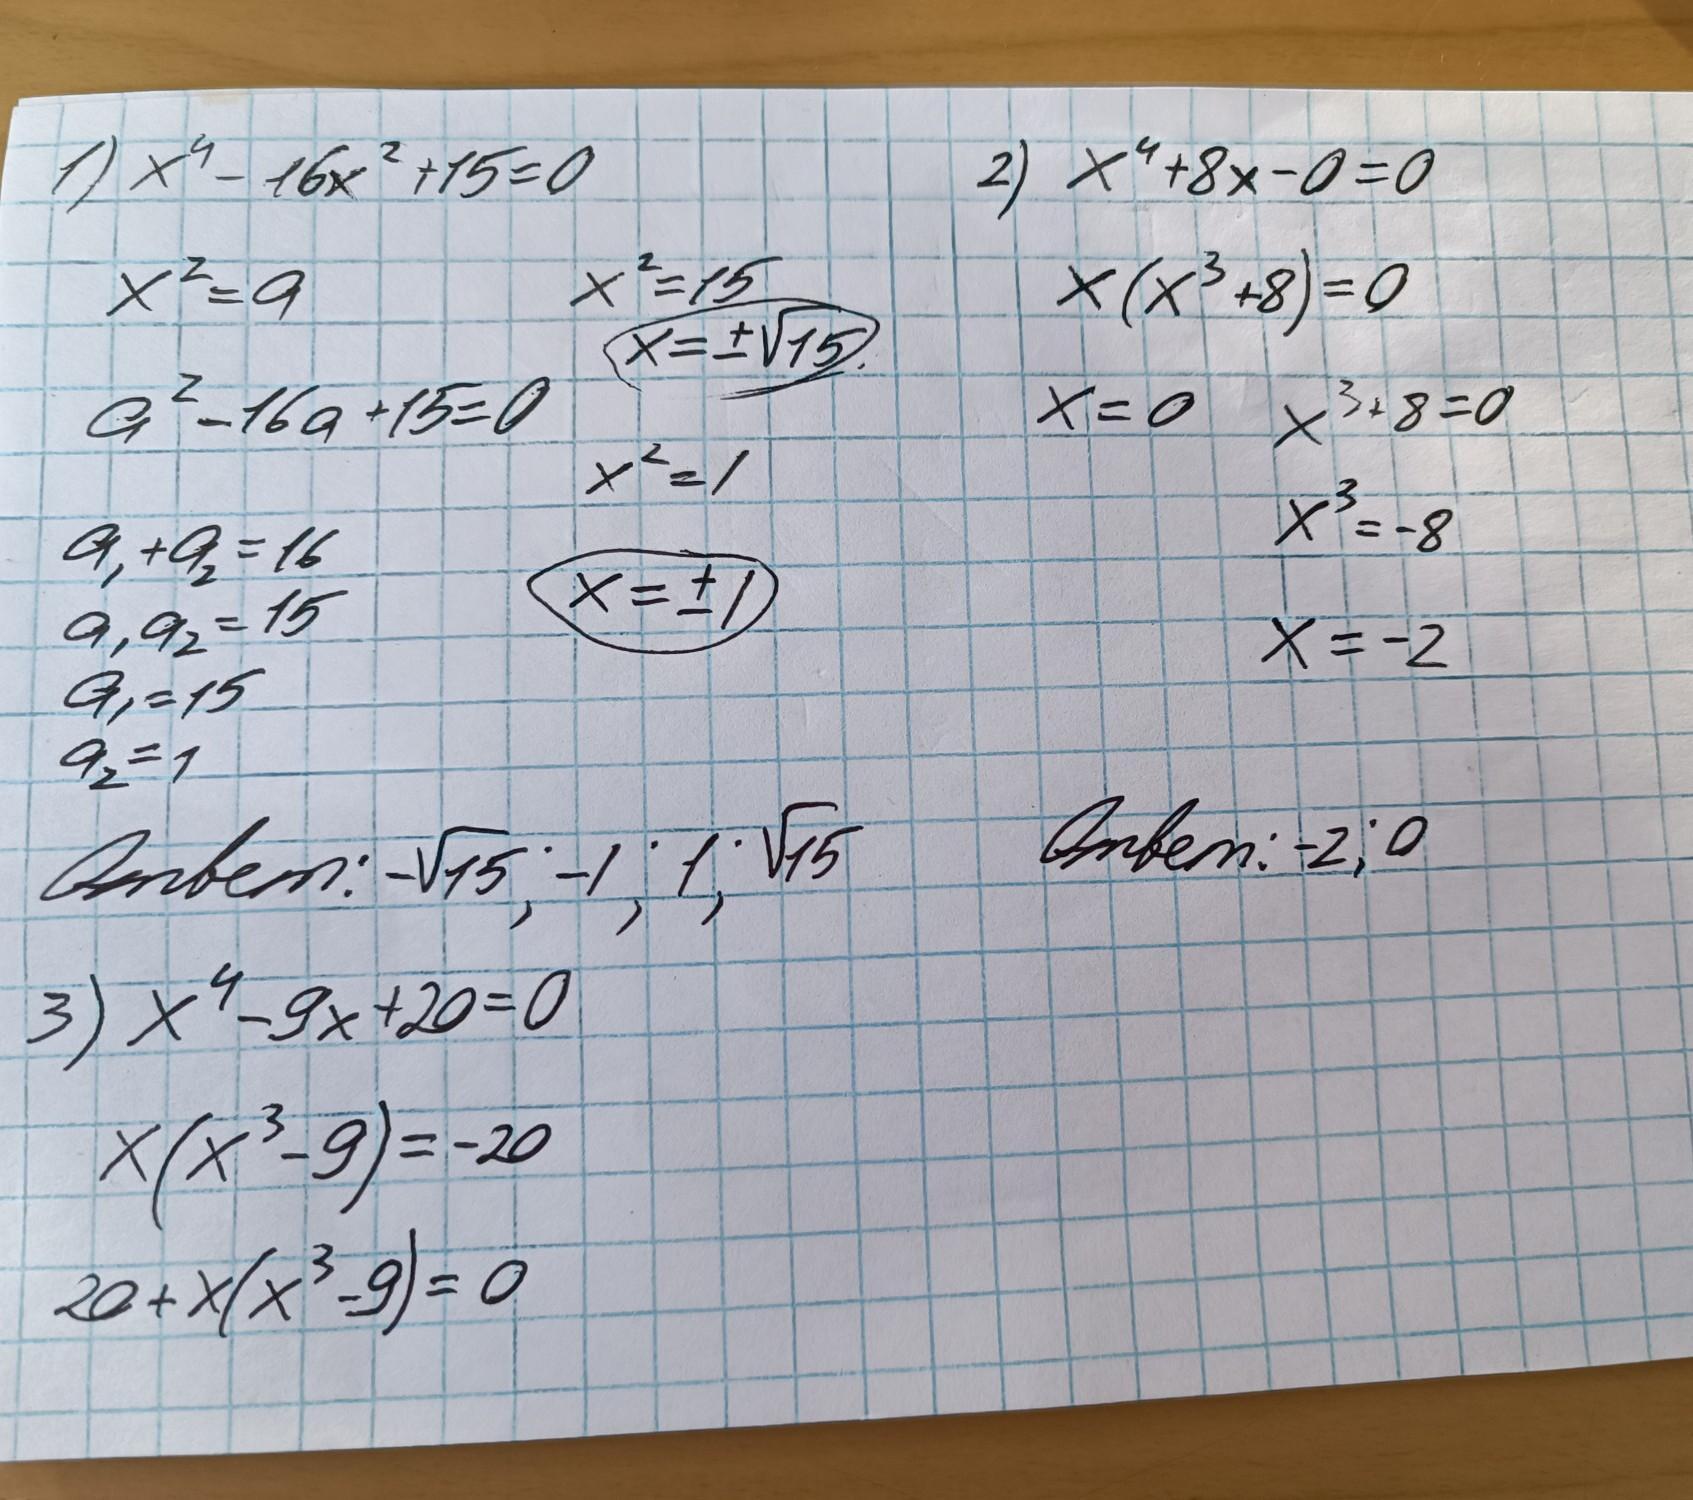 1) x⁴ - 16x² + 15 = 0
x² = a
a² - 16a + 15 = 0
a₁ + a₂ = 16
a₁ a₂ = 15
a₁ = 15
a₂ = 1
x² = 15
x = ±√15.
x² = 1
x = ±1
Ответ: -√15; -1; 1; √15
2) x⁴ + 8x - 0 = 0
x(x³ + 8) = 0
x = 0 x³ + 8 = 0
x³ = -8
x = -2
Ответ: -2; 0
3) x⁴ - 9x + 20 = 0
x(x³ - 9) = -20
20 + x(x³ - 9) = 0